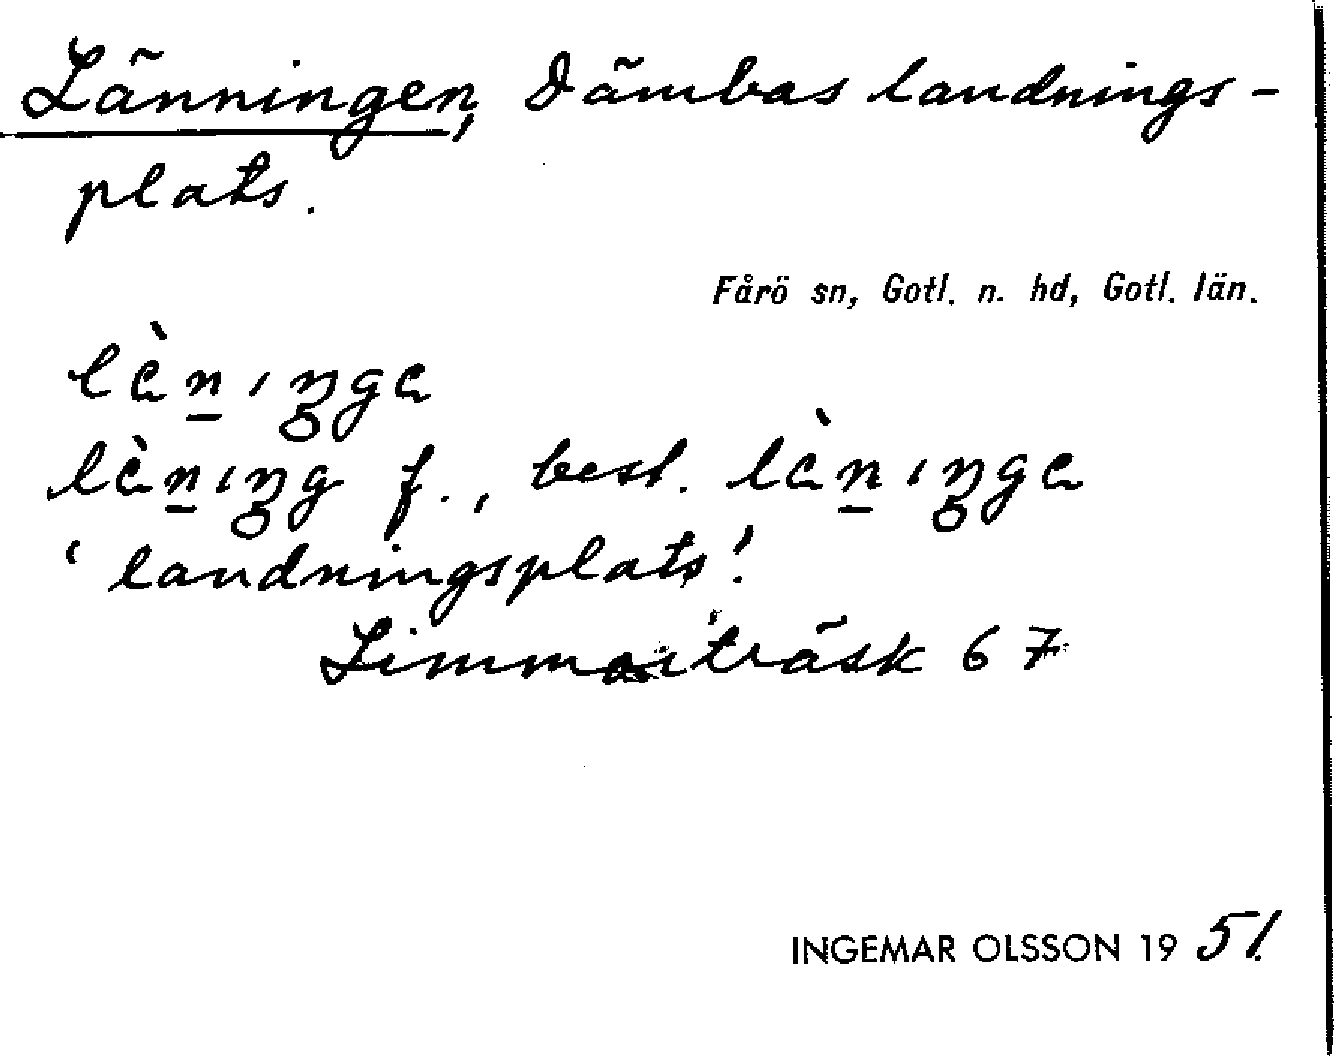 Länningen, Dämbas landnings-
plats.
Fårö sn, Gotl. n. hd, Gotl. län.
lèn̠ıŋgɛ
lèn̠ıŋg f., best. lèn̠ıŋgɛ
'landningsplats'.
Limmorträsk 67
INGEMAR OLSSON 1951.